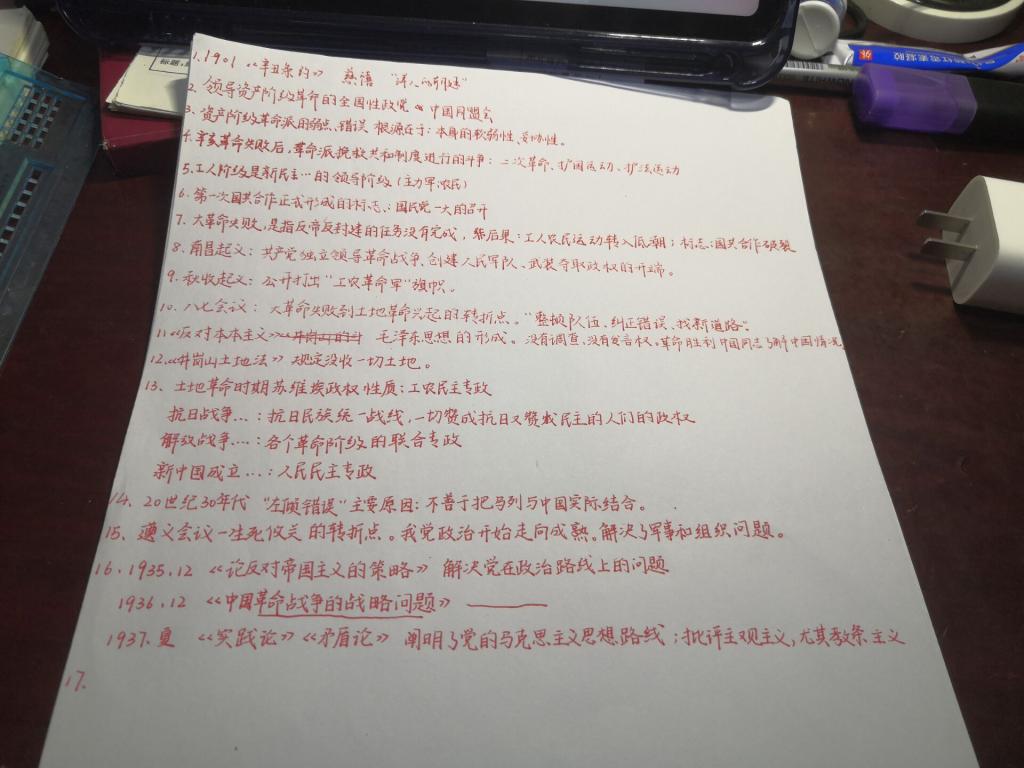 1.1901《辛丑条约》 慈禧 "洋人的朝廷"
2. 领导资产阶级革命的全国性政党 中国同盟会
3. 资产阶级革命派的弱点、错误 根源在于:本身的软弱性、妥协性。
4.辛亥革命失败后,革命派挽救共和制度进行的斗争:二次革命、护国运动、护法运动
5.工人阶级是新民主…的领导阶级(主力军:农民)
6.第一次国共合作正式形成的标志:国民党一大的召开
7.大革命失败,是指反帝反封建的任务没有完成,后果:工人农民运动转入低潮;标志:国共合作破裂
8.南昌起义:共产党独立领导革命战争、创建人民军队、武装夺取政权的开端。
9.秋收起义:公开打出"工农革命军"旗帜。
10.八七会议:大革命失败到土地革命兴起的转折点。"整顿队伍、纠正错误、找新道路".
11.《反对本本主义》 毛泽东思想的形成。没有调查,没有发言权。革命胜利中国同志了解中国情况
12.《井岗山土地法》规定没收一切土地。
13、土地革命时期苏维埃政权性质:工农民主专政
抗日战争…:抗日民族统一战线,一切赞成抗日又赞成民主的人们的政权
解放战争…:各个革命阶级的联合专政
新中国成立…:人民民主专政
14、20世纪30年代"左倾错误"主要原因:不善于把马列与中国实际结合。
15、遵义会议—生死攸关的转折点。我党政治开始走向成熟。解决了军事和组织问题。
16.1935.12《论反对帝国主义的策略》解决党在政治路线上的问题
1936.12《中国革命战争的战略问题》
1937.夏《实践论》《矛盾论》阐明了党的马克思主义思想路线;批评主观主义,尤其教条主义
17.